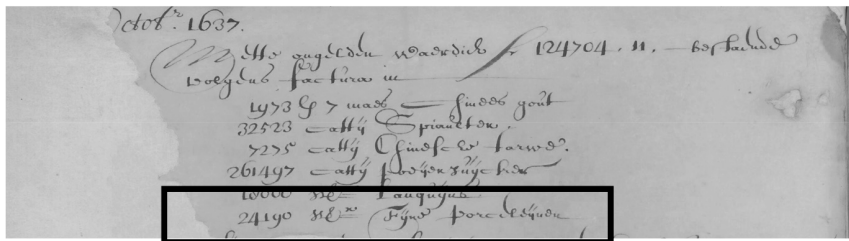 octobr. 1637.
Mette ongelden waerdich f 124704 . 11 . bestaende
volgens factura in
1973 7 maes Chinees gout
32523 catty Spiaulter .
7275 catty Chineese tarwe .
261497 catty poeyer suycker
10000 Canquijns
24190 Fijne Porceleijnen